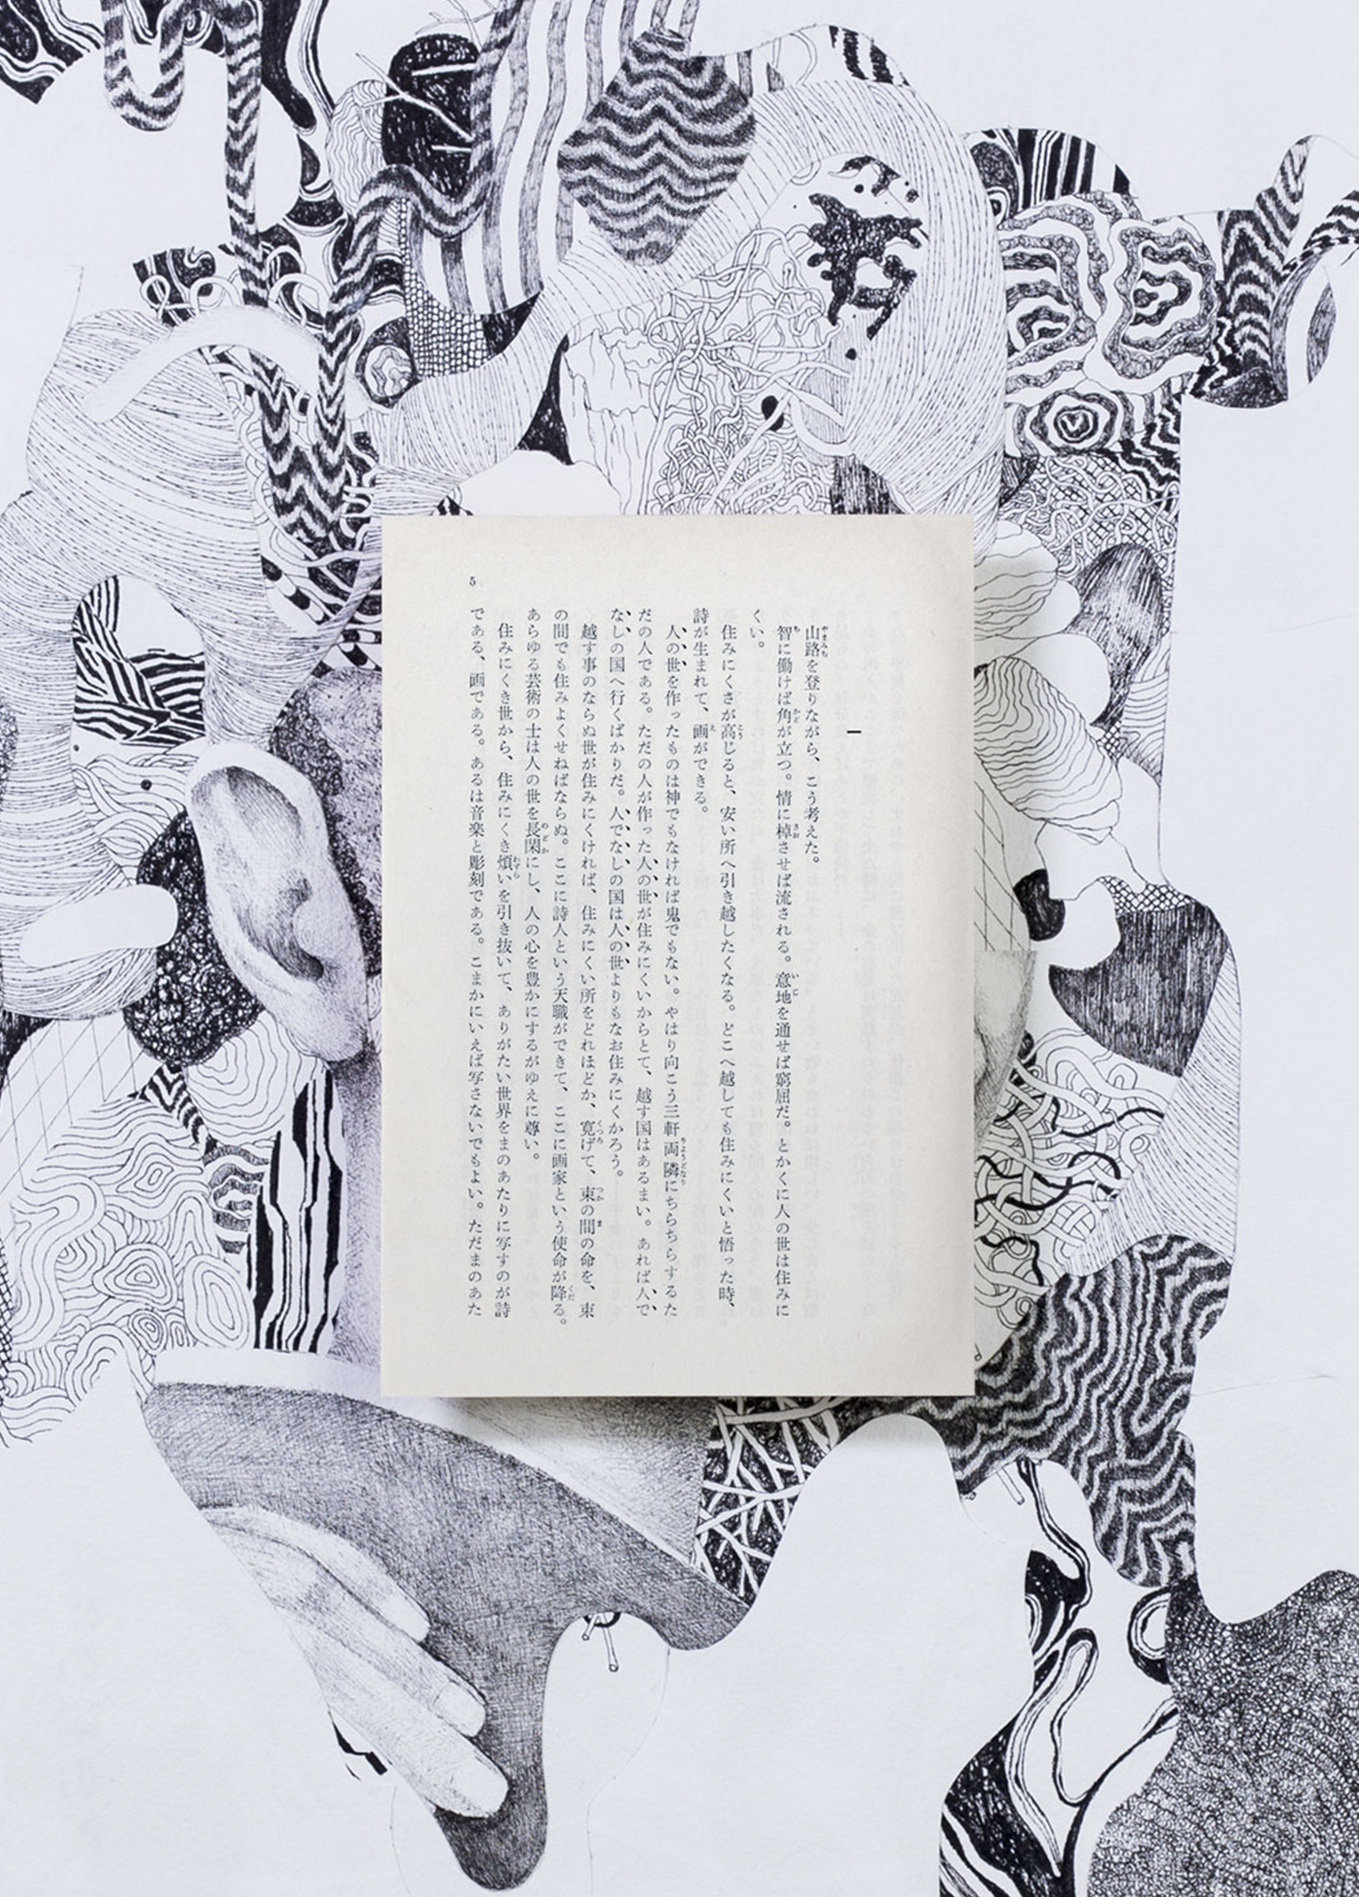 一
山路を登りながら、こう考えた。
智に働けば角が立つ。情に棹させば流される。意地を通せば窮屈だ。とかくに人の世は住みに
くい。
住みにくさが高じると、安い所へ引き越したくなる。どこへ越しても住みにくいと悟った時、
詩が生まれて、画ができる。
人の世を作ったものは神でもなければ鬼でもない。やはり向こう三軒両隣にちらちらするた
だの人である。ただの人が作った人の世が住みにくいからとて、越す国はあるまい。あれば人で
なしの国へ行くばかりだ。人でなしの国は人の世よりもなお住みにくかろう。
越す事のならぬ世が住みにくければ、住みにくい所をどれほどか、寛げて、束の間の命を、束
の間でも住みよくせねばならぬ。ここに詩人という天職ができて、ここに画家という使命が降る。
あらゆる芸術の士は人の世を長閑にし、人の心を豊かにするがゆえに尊い。
住みにくき世から、住みにくき煩いを引き抜いて、ありがたい世界をまのあたりに写すのが詩
である、画である。あるは音楽と彫刻である。こまかにいえば写さないでもよい。ただまのあた
5